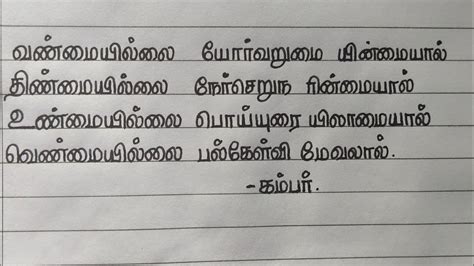 வண்மையில்லை யோர்வறுமை யின்மையால்
திண்மையில்லை நேர்செறுந ரின்மையால்
உண்மையில்லை பொய்யுரை யிலாமையால்
வெண்மையில்லை பல்கேள்வி மேவலால்.
-கம்பர்.